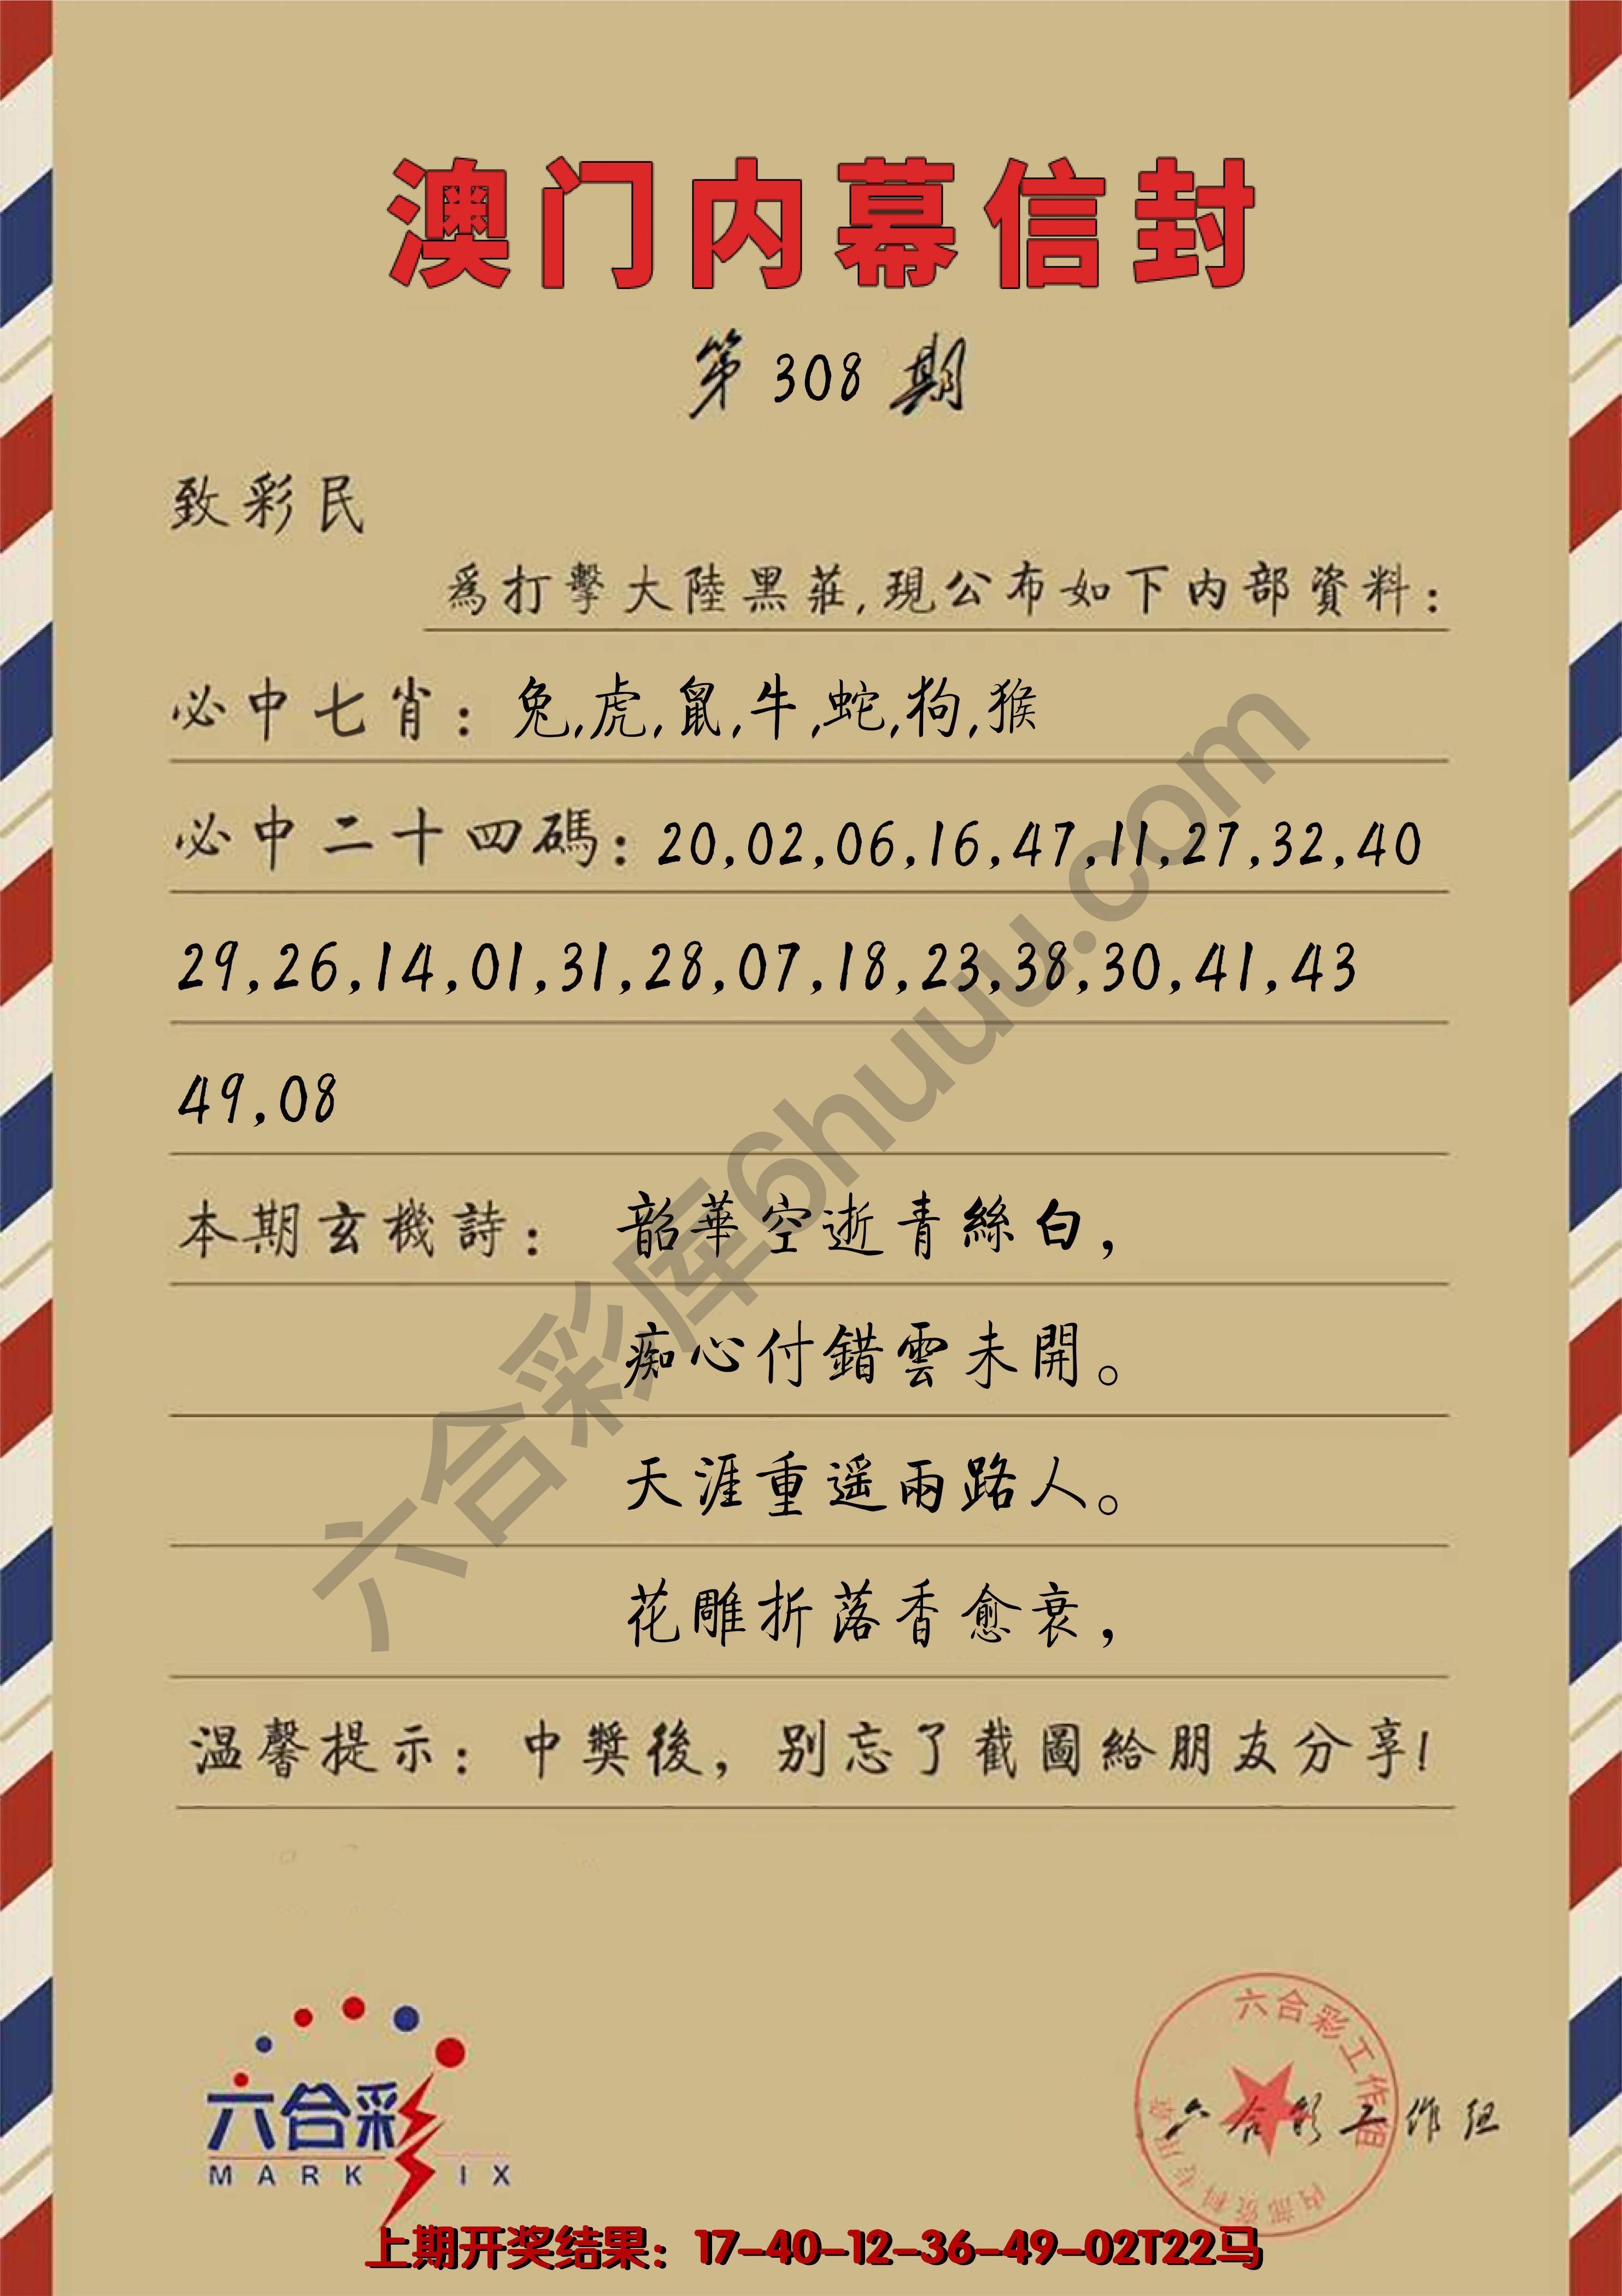 澳门内幕信封
第 308 期
致彩民
爲打擊大陸黑莊,現公布如下内部資料:
必中七肖: 兔,虎,鼠,牛,蛇,狗,猴
必中二十四碼: 20,02,06,16,47,11,27,32,40
29,26,14,01,31,28,07,18,23,38,30,41,43
49,08
本期玄機詩: 韶華空逝青絲白,
痴心付錯雲未開。
天涯重遥兩路人。
花雕折落香愈衰,
温馨提示: 中獎後, 别忘了截圖給朋友分享!
六合彩库6huuu.com
六合彩
MARK SIX
六合彩工作组
内部资料专用章
六合彩工作组
上期开奖结果: 17-40-12-36-49-02T22马